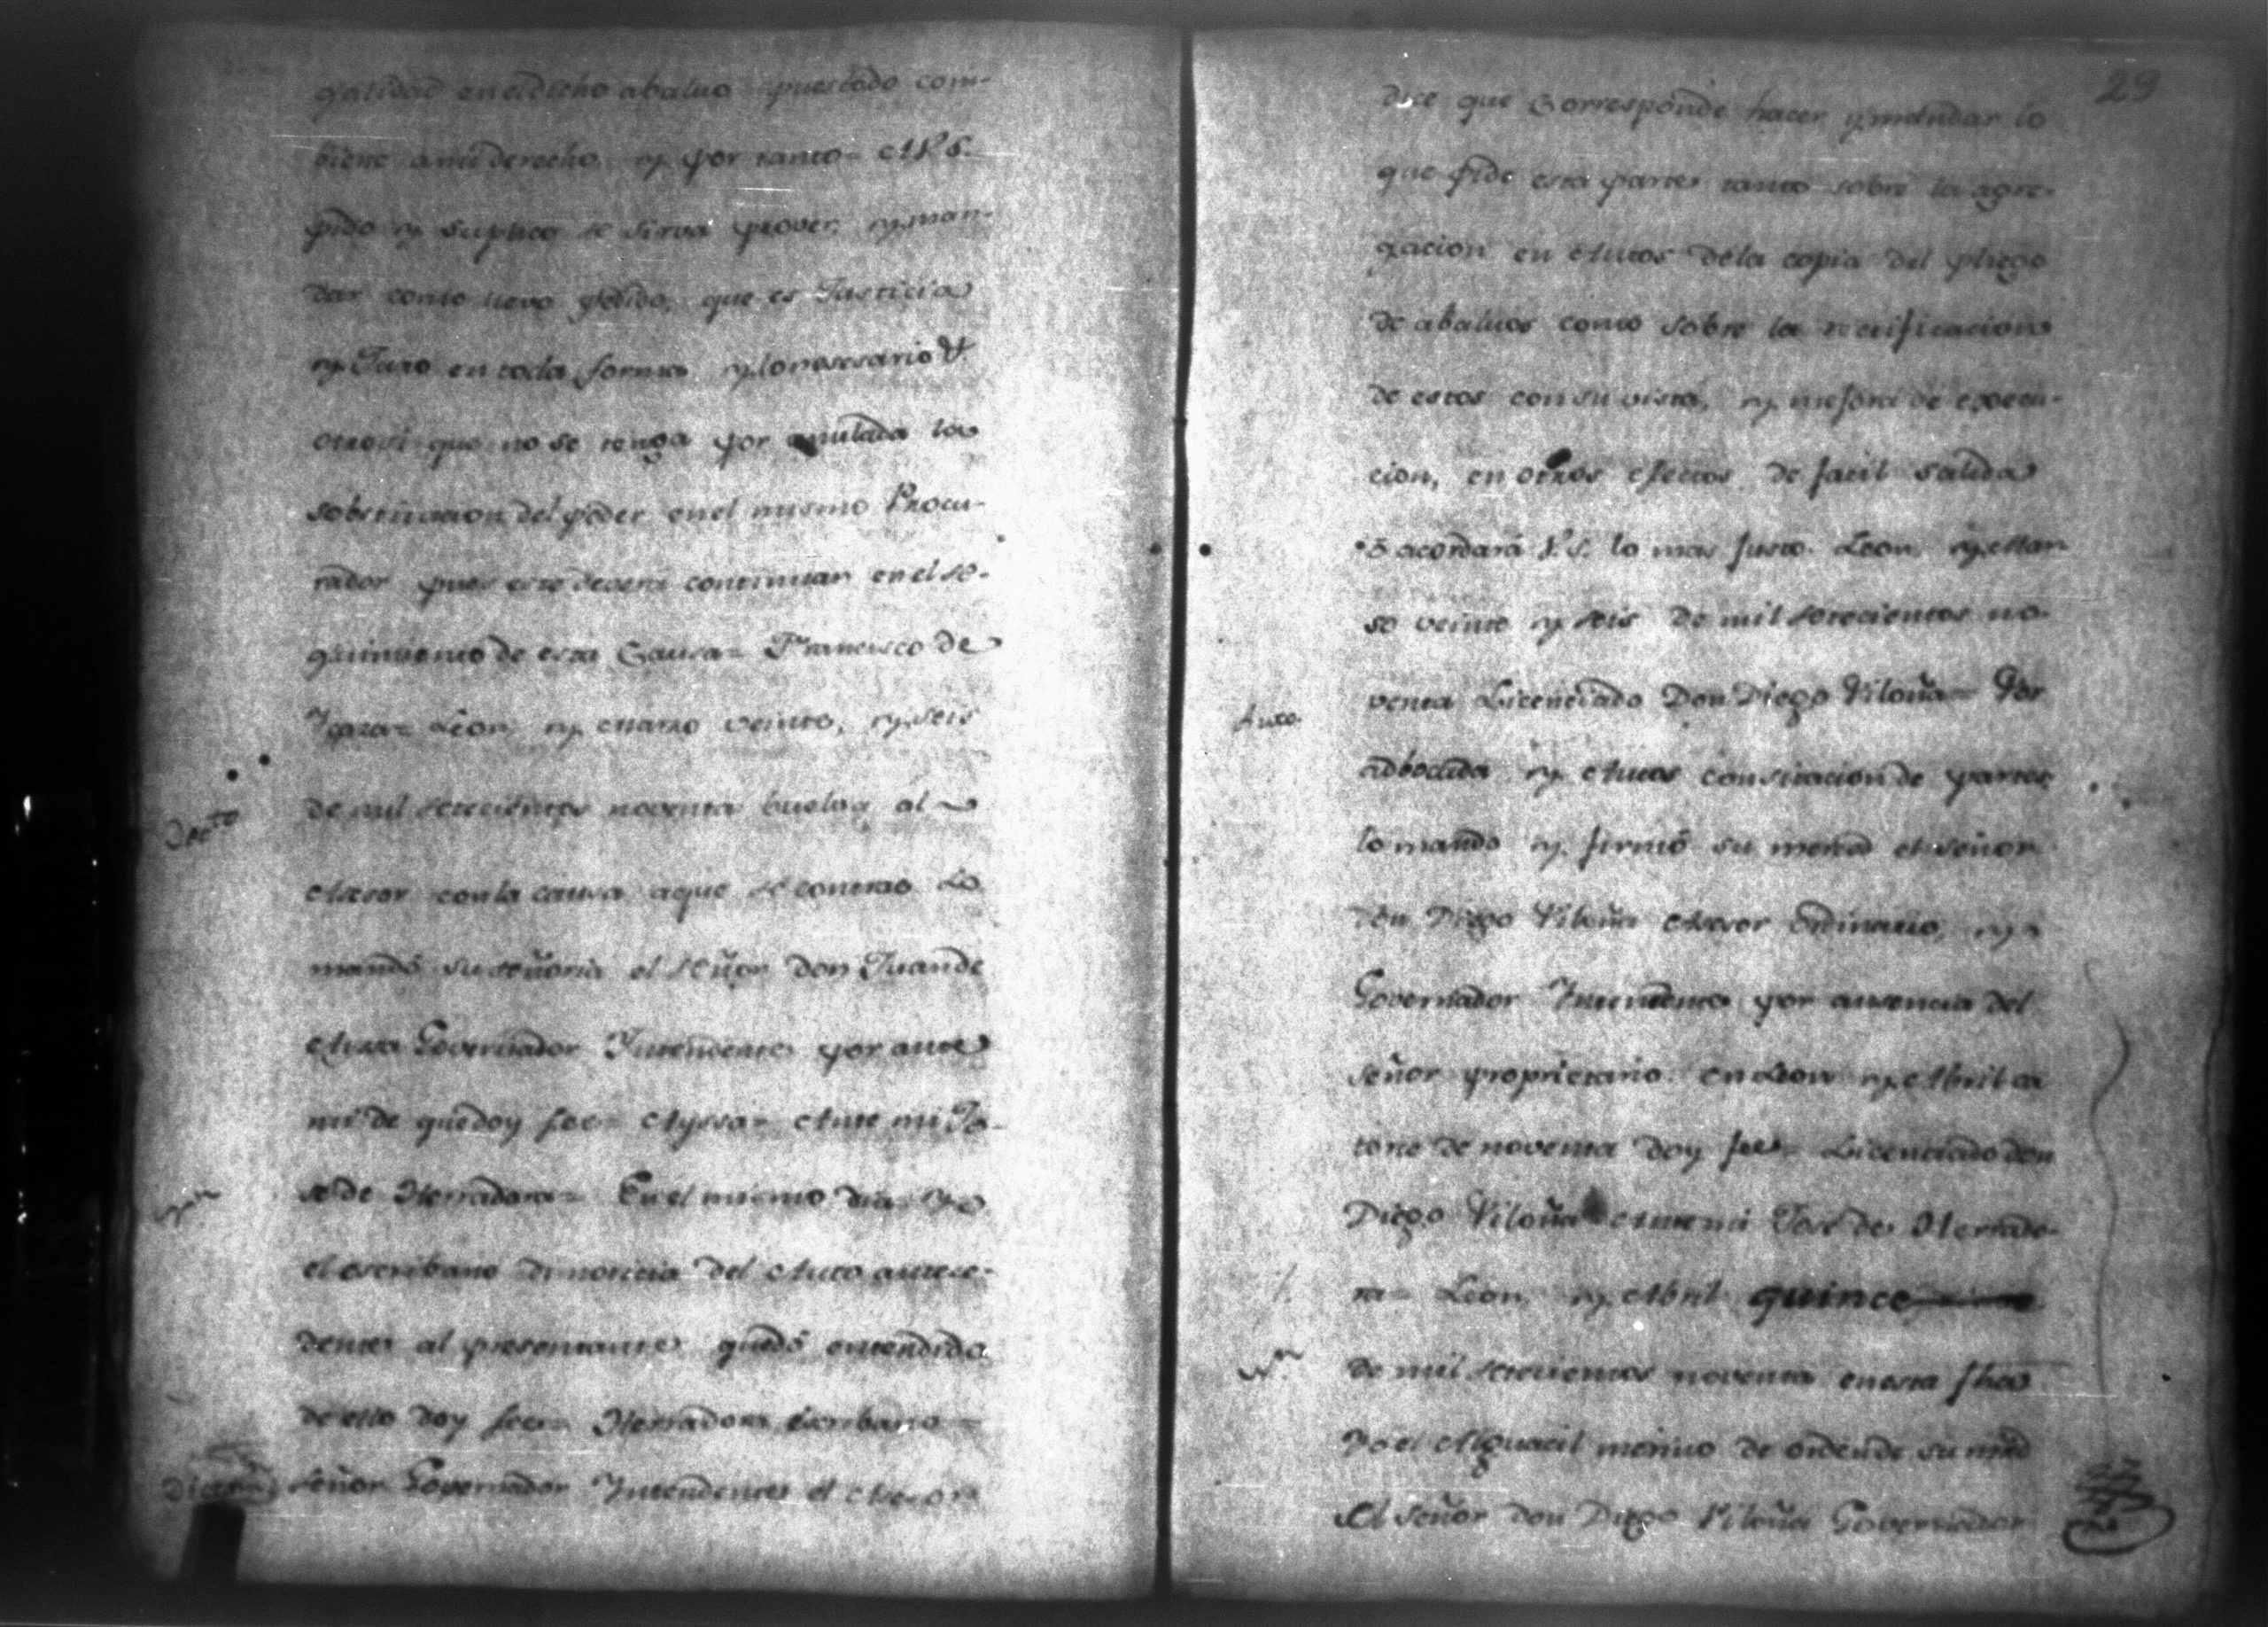 galidad en el dicho abaluo pues todo com-
biene a mi derecho, y por tanto = A V.S.
pido y suplico se sirva prover, y man-
dar como llevo pedido, que es Justicia
y Juro en toda forma y lo nesesario &.
otrosi que no se tenga por anulada la
sobstitucion del poder en el mismo Procu-
rador pues este deverá continuar en el se-
guimiento de esta Causa = Francisco de
Leon y enero veinte, y seis
de mil setecientos noventa buelva al
Decto
Asesor con la causa a que se contrae Lo
mandó su señoria el señor don Juan de
Aissa Governador Yntendente por ante
mi de que doy fee = Ayssa = Ante mi Jo-
se de Herradora = En el mismo dia Yo
el escribano di noticia del Auto antese-
dente al presentante quedó entendido
de ello doy fee = Herradora escribano =
señor Governador Yntendente el Asesor
29
dice que Corresponde hacer y mandar lo
que pide esta parte tanto sobre la agre-
gacion en Autos de la copia del pliego
de abaluos como sobre la rectificacion
de estos con su vista, y mejora de execu-
cion, en otros efectos de facil salida
ó acordará V.S. lo mas justo. Leon, y Mar-
so veinte y seis de mil setecientos no-
venta Licenciado Don Diego Piloña = Por
Auto
adbocada y Autos con sitacion de partes
lo mandó y firmó su merced el señor
don Diego Piloña Asesor Ordinario, y
Governador Yntendente por ausencia del
señor proprietario en Leon y Abril ca
torse de noventa doy fee = Licenciado don
Diego Piloña Ante mi José de Herrado-
ra = Leon y Abril quince
de mil setecientos noventa en esta fha
Yo el Alguacil menino de orden de su mrd
el señor don Diego Piloña Governador